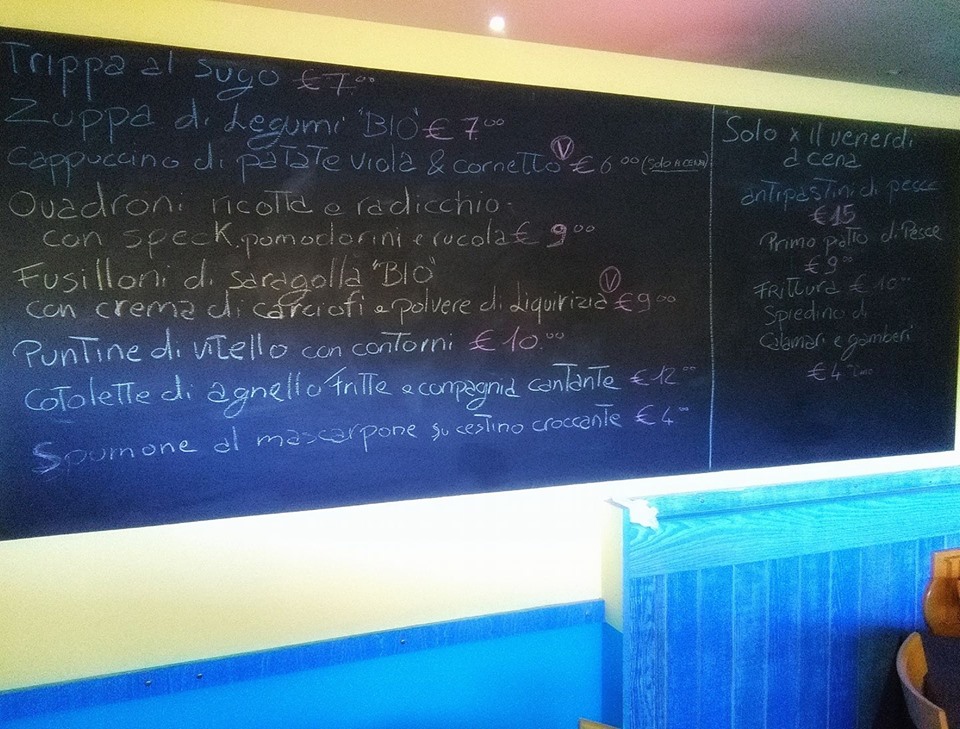 Trippa al sugo €7.00
Zuppa di Legumi "BIO" €7.00
Cappuccino di patate viola & cornetto V €6.00 (Solo A CENA)
Quadroni ricotta e radicchio
con speck, pomodorini e rucola €9.00
Fusilloni di saragolla "BIO"
con crema di carciofi e polvere di Liquirizia V €9.00
Puntine di vitello con contorni €10.00
Cotolette di agnello fritte e compagnia cantante €12.00
Spumone al mascarpone su cestino croccante €4.00
Solo x il venerdi
a cena
antipastini di pesce
€15
Primo piatto di Pesce
€9.00
Frittura €10.00
Spiedino di
Calamari e gamberi
€4